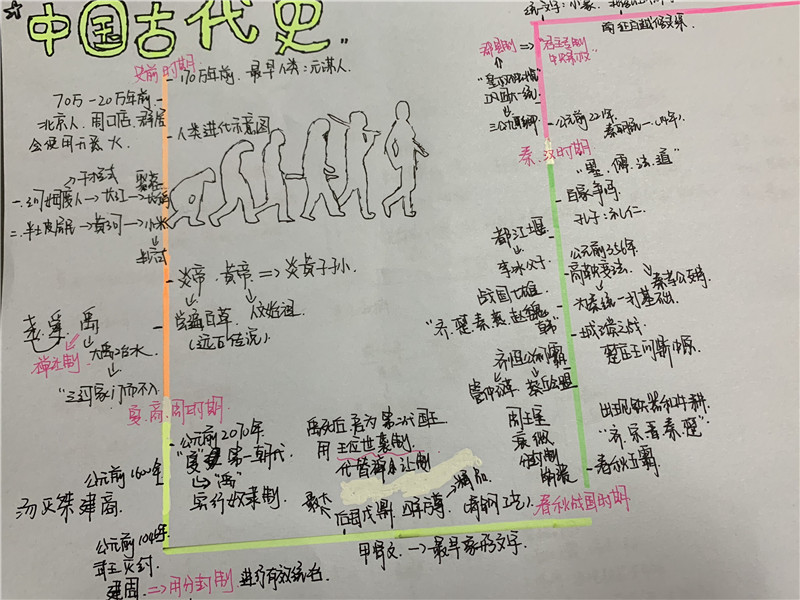 中国古代史
史前时期
170万年前，最早人类：元谋人.
70万-20万年前
北京人 周口店 群居
会使用天然火
人类进化示意图
干栏式
一.河姆渡人→长江→水稻
二.半坡居民→黄河→小米
半穴式
炎帝 黄帝 ⇒ 炎黄子孙.
尝遍百草 人文始祖
(远古传说)
尧.舜.禹
禅让制
大禹治水
"三过家门而不入
夏.商.周时期
公元前2070年
"夏" 第一朝代
实行奴隶制.
公元前1600年
汤灭桀建商
公元前1046年
武王灭纣
建周⇒用分封制 进行有效统治
禹死后 启为第二代国王
用王位世袭制
代替禅让制
最大
后母戊鼎 四羊方尊 (青铜工艺)
甲骨文→最早象形文字
春秋战国时期
春秋五霸
"齐宋晋秦楚"
出现铁器和牛耕
周王室
衰微
分封制
齐桓公首霸
管仲改革 葵丘会盟
城濮之战
楚庄王问鼎中原.
战国七雄
"齐楚秦燕赵魏
韩"
都江堰
李冰父子
公元前356年
商鞅变法 秦孝公支持
为秦统一打基础.
百家争鸣
孔子:礼仁.
"墨、儒、法、道"
秦.汉时期
公元前221年
秦朝统一.
郡县制